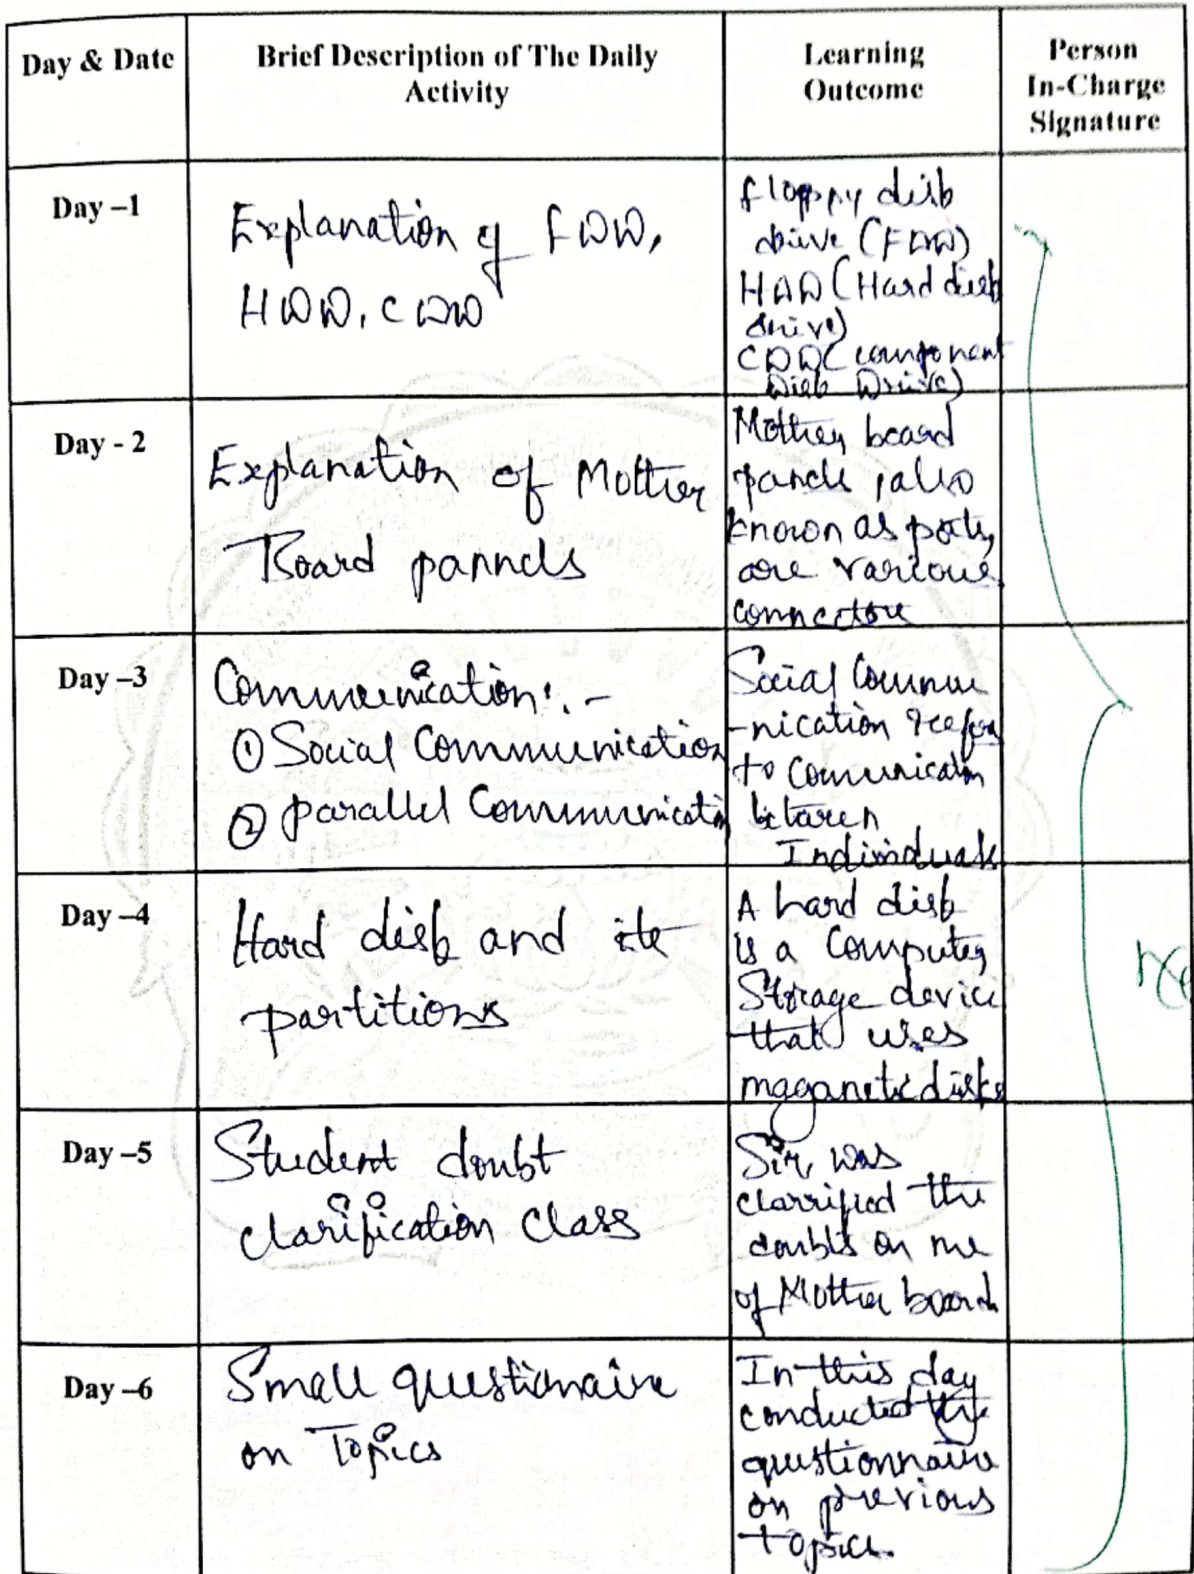 Day & Date
Brief Description of The Daily
Activity
Learning
Outcome
Person
In-Charge
Signature
Day –1
Explanation of FDD,
HDD, CDD
floppy disk
drive (FDD)
HDD (Hard disk
drive)
CDD( component
Disk Drive)
Day - 2
Explanation of Mother
Board pannels
Mother board
panels, also
known as ports,
are various
connectors
Day –3
Communication: -
① Social Communication
② parallel Communicati
Social Commu
-nication reefers
to Comunication
between
Individuals
Day –4
Hard disk and its
partitions
A hard disk
is a Computer
Storage device
that uses
maganetic disks
Day –5
Student doubt
clarification class
Sir, was
clarrified the
doubts on me
of Mother board
Day –6
Small questionaire
on Topics
In this day
conducted the
questionnaire
on previous
topics.